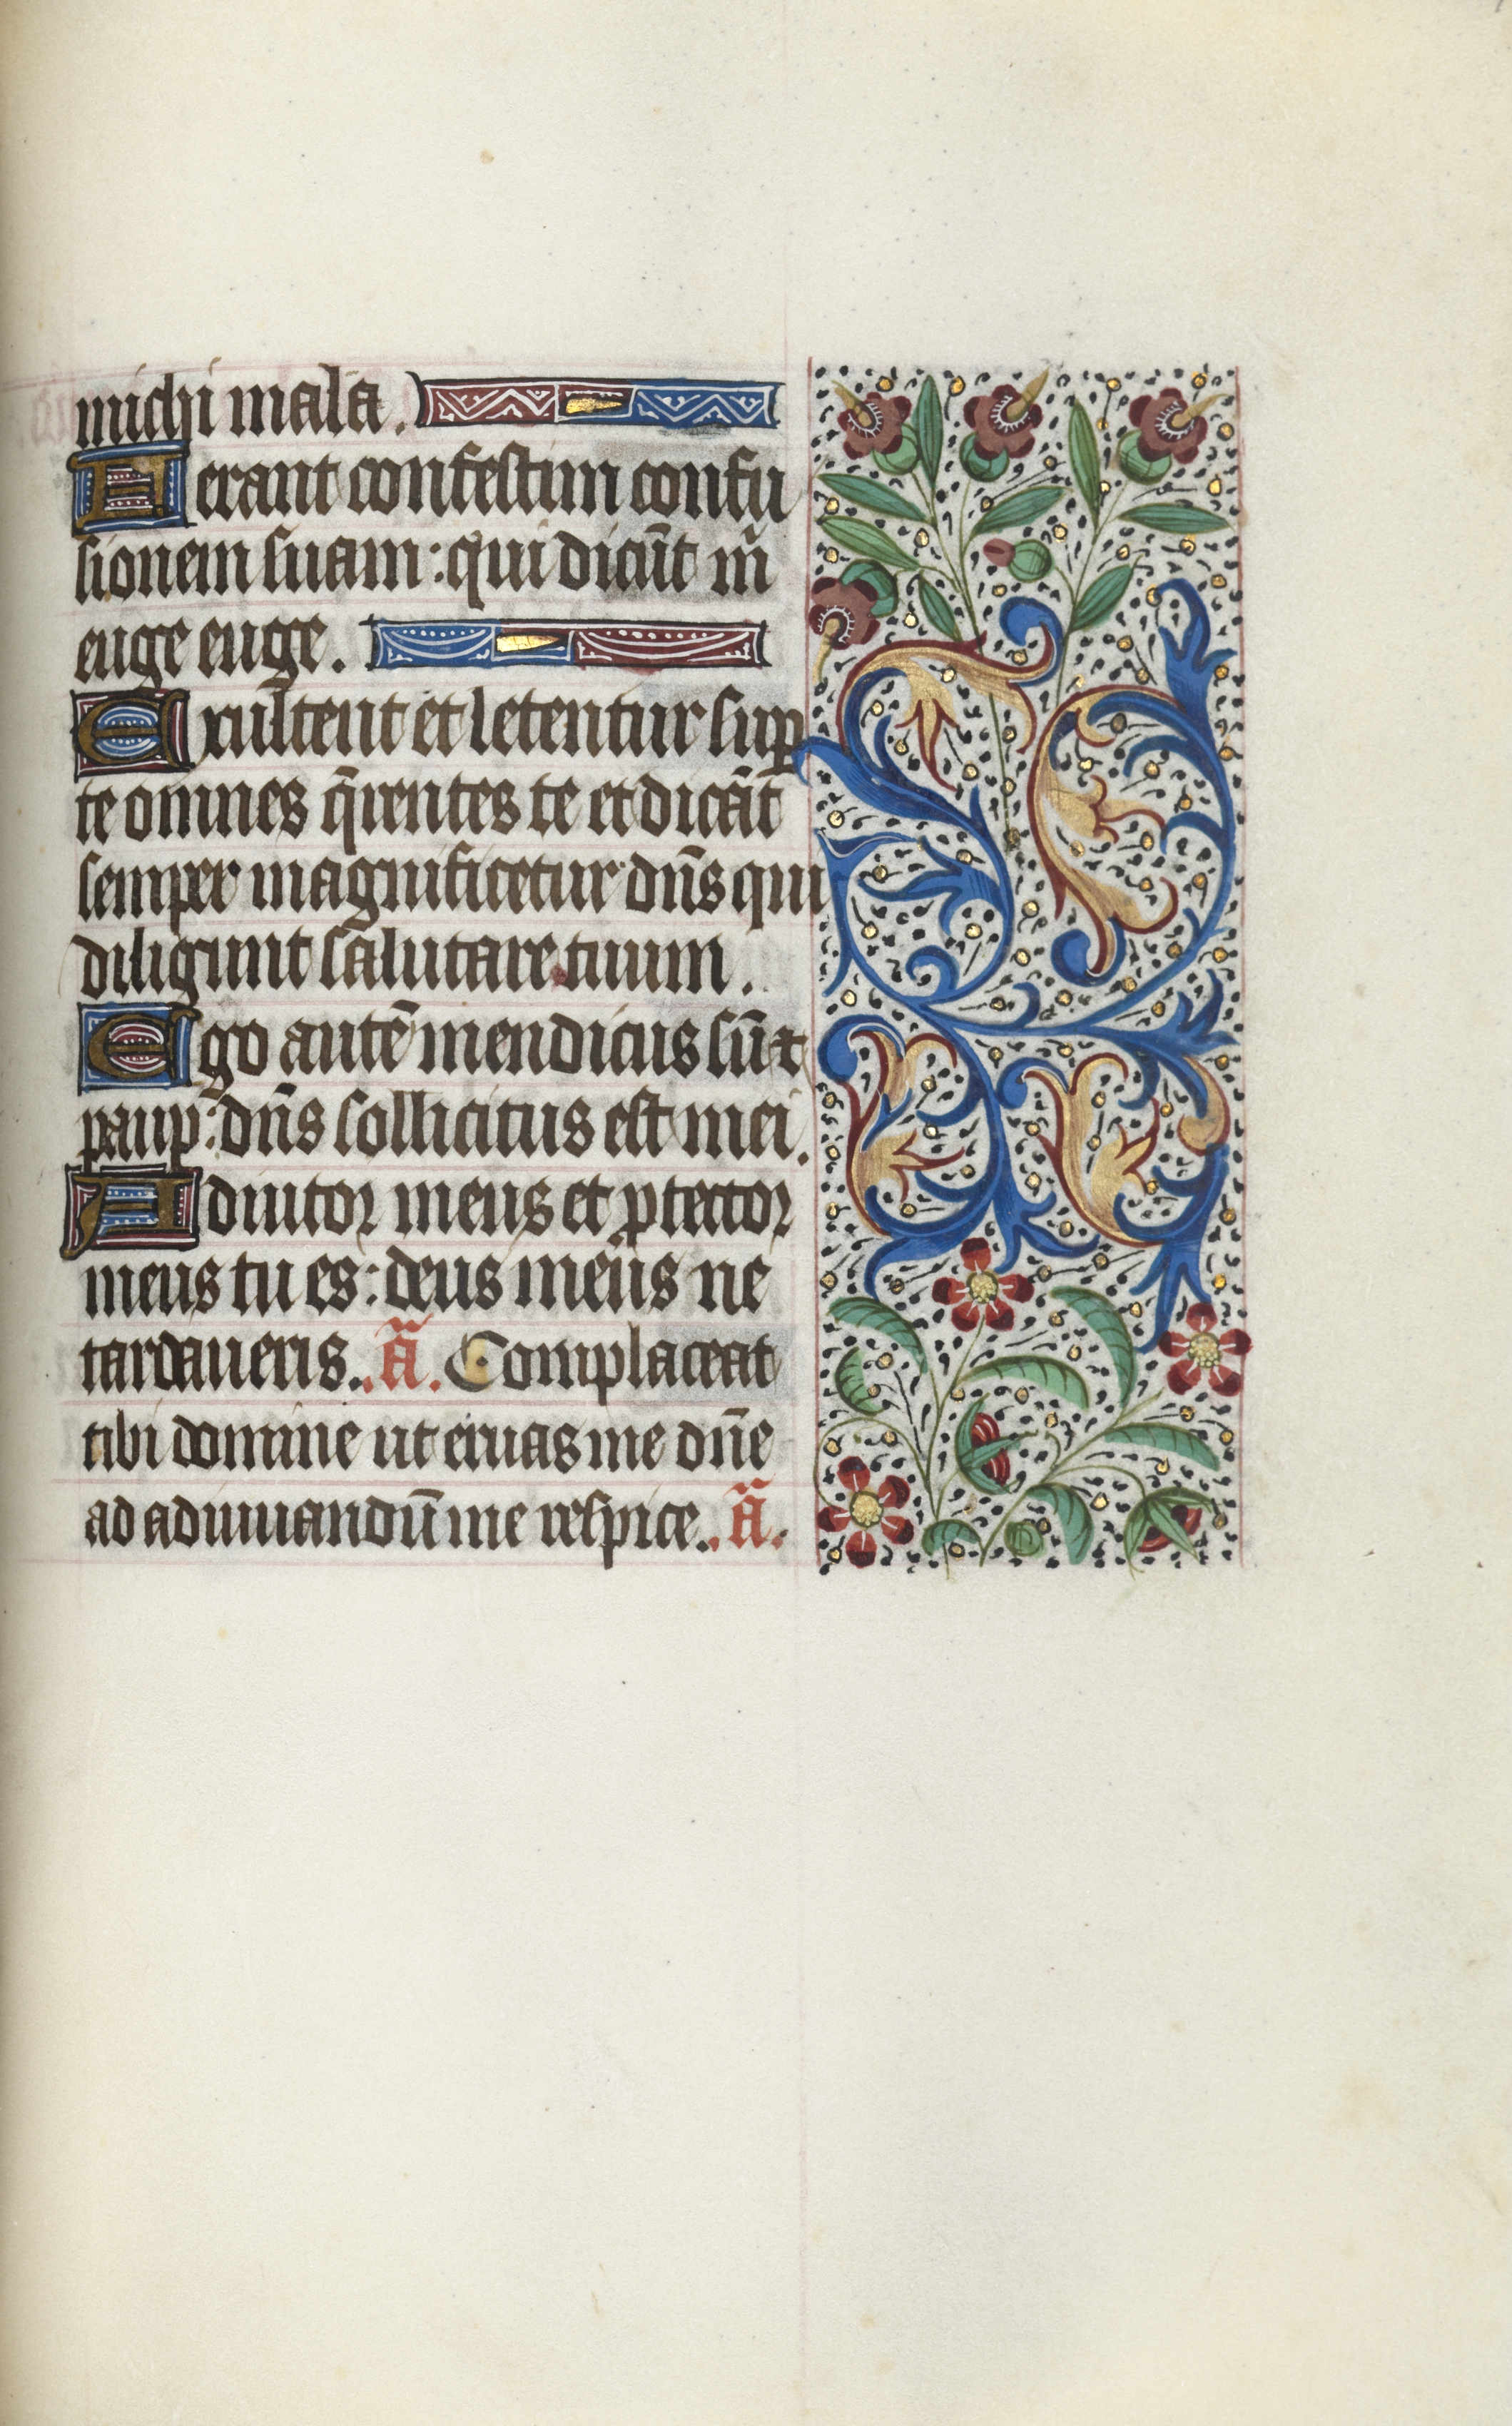 michi mala.
Ferant confestim confu
sionem suam: qui dicu̅t m̅
euge euge.
Exultent et letentur sup̲
te omnes q̅rentes te et dica̅t
semper magnificetur dn̅s qui
diligunt salutare tuum.
Ego aute̅ mendicus su̅ ⁊
paup̲: dn̅s sollicitus est mei.
Adiutor meus et ꝓtector
meus tu es: deus meus ne
tardaueris. a̅. Complaceat
tibi domine ut eruas me dn̅e
ad adiuuandu̅ me respice. a̅.